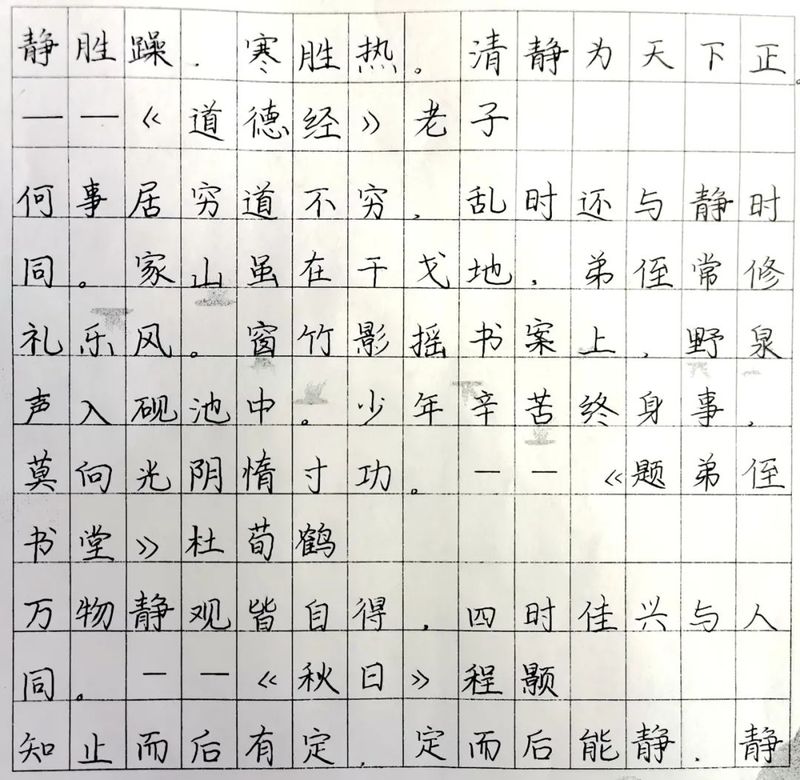 静胜躁，寒胜热。清静为天下正。
——《道德经》老子
何事居穷道不穷，乱时还与静时
同。家山虽在干戈地，弟侄常修
礼乐风。窗竹影摇书案上，野泉
声入砚池中。少年辛苦终身事，
莫向光阴惰寸功。——《题弟侄
书堂》杜荀鹤
万物静观皆自得，四时佳兴与人
同。——《秋日》程颢
知止而后有定，定而后能静，静